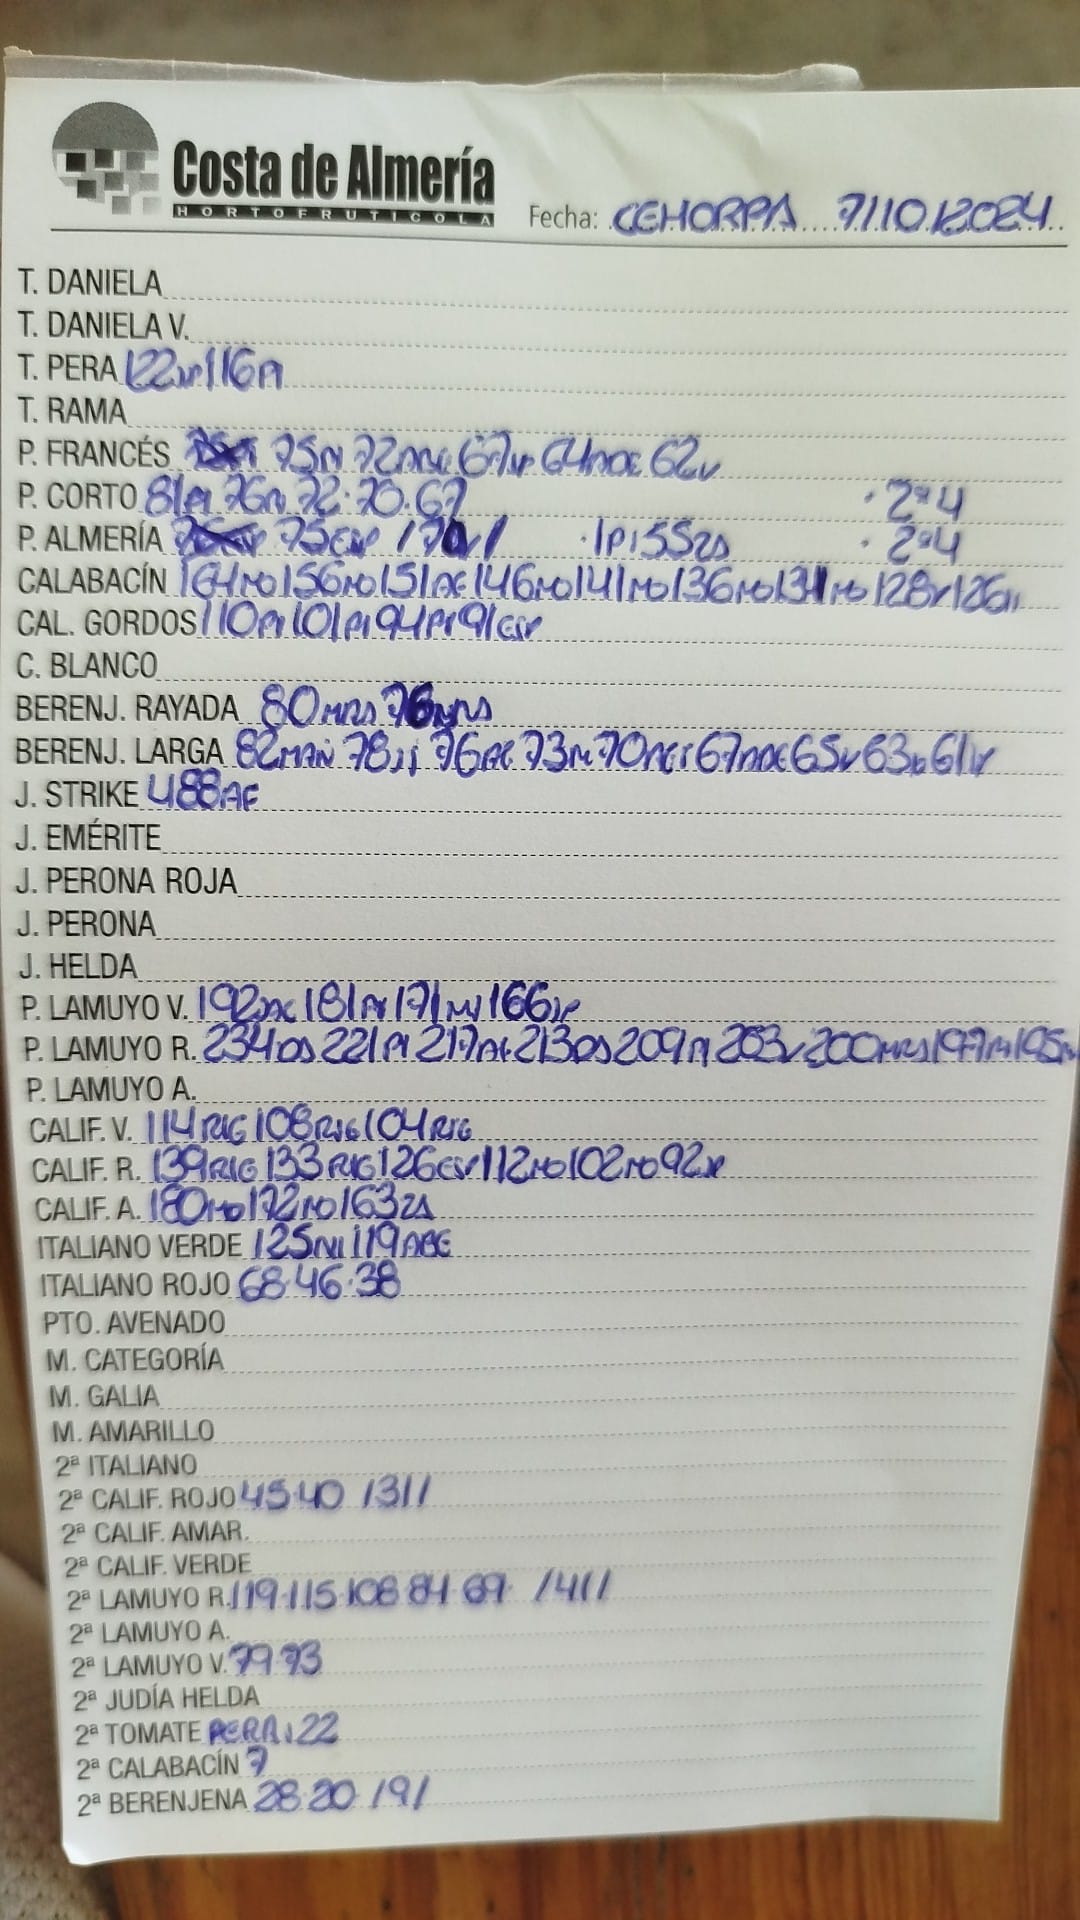 Costa de Almería
HORTOFRUTICOLA
Fecha: CEHORPA 7/10/2024
T. DANIELA
T. DANIELA V.
T. PERA 122 116PI
T. RAMA
P. FRANCÉS 75N 72 67 64 62V
P. CORTO 81PI 76N 72·70·67 ·2ª4
P. ALMERÍA 75ESP /70/ ·1P155ZS ·2ª4
CALABACÍN 164MO 156MO 151AE 146MO 141MO 136MO 134MO 128V 126
CAL. GORDOS 110PI 101PI 94PI 91ESP
C. BLANCO
BERENJ. RAYADA 80MRS 76MRS
BERENJ. LARGA 82MAN 78JJ 76AE 73M 70 67 65V 63 61V
J. STRIKE 488AE
J. EMÉRITE
J. PERONA ROJA
J. PERONA
J. HELDA
P. LAMUYO V. 192 181PI 171 166
P. LAMUYO R. 234DS 221PI 217AE 213DS 209PI 203V 200MRS 197M 195
P. LAMUYO A.
CALIF. V. 114RIG 108RIG 104RIG
CALIF. R. 139RIG 133RIG 126ESP 112MO 102MO 92
CALIF. A. 180MO 172MO 163ZS
ITALIANO VERDE 125NI 119ABE
ITALIANO ROJO 68·46·38
PTO. AVENADO
M. CATEGORÍA
M. GALIA
M. AMARILLO
2ª ITALIANO
2ª CALIF. ROJO 45·40 /31/
2ª CALIF. AMAR.
2ª CALIF. VERDE
2ª LAMUYO R. 119·115·108·84·69· /41/
2ª LAMUYO A.
2ª LAMUYO V. 79·73
2ª JUDÍA HELDA
2ª TOMATE PERA: 22
2ª CALABACÍN 7
2ª BERENJENA 28·20 /9/